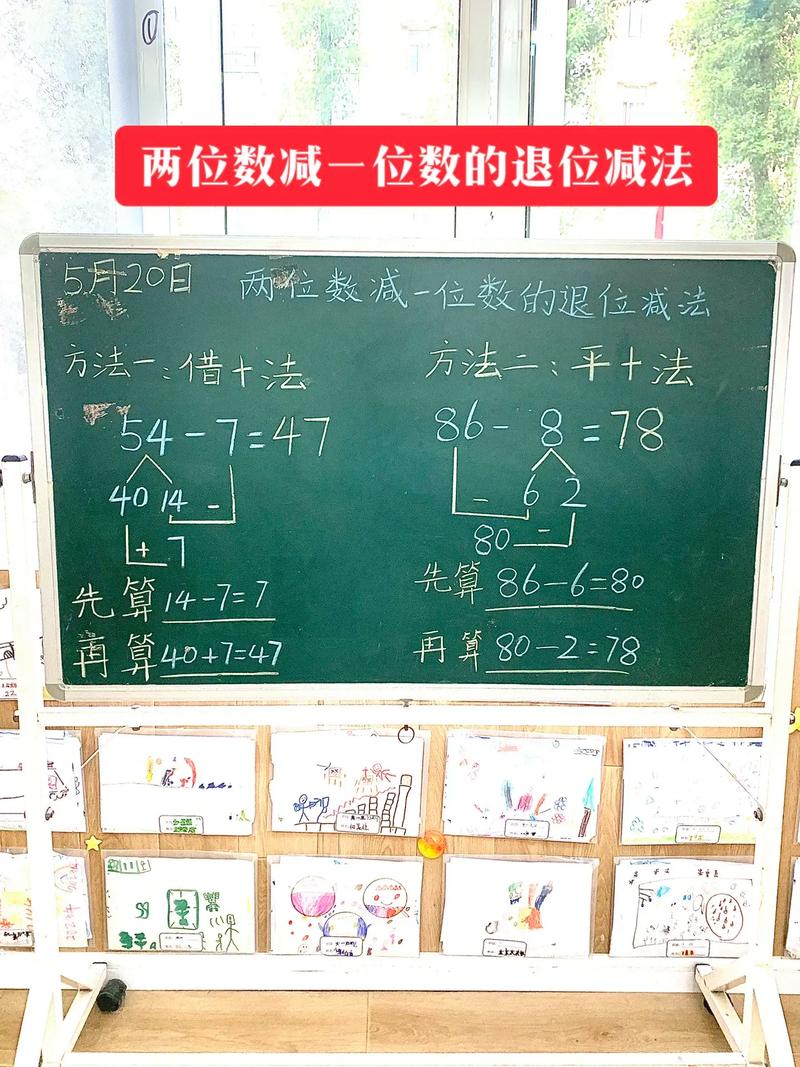 ①
两位数减一位数的退位减法
5月20日 两位数减一位数的退位减法
方法一:借十法
54-7=47
40 14 -
+ 7
先算 14-7=7
再算 40+7=47
方法二:平十法
86- 8=78
- 6 2
80 -
先算 86-6=80
再算 80-2=78